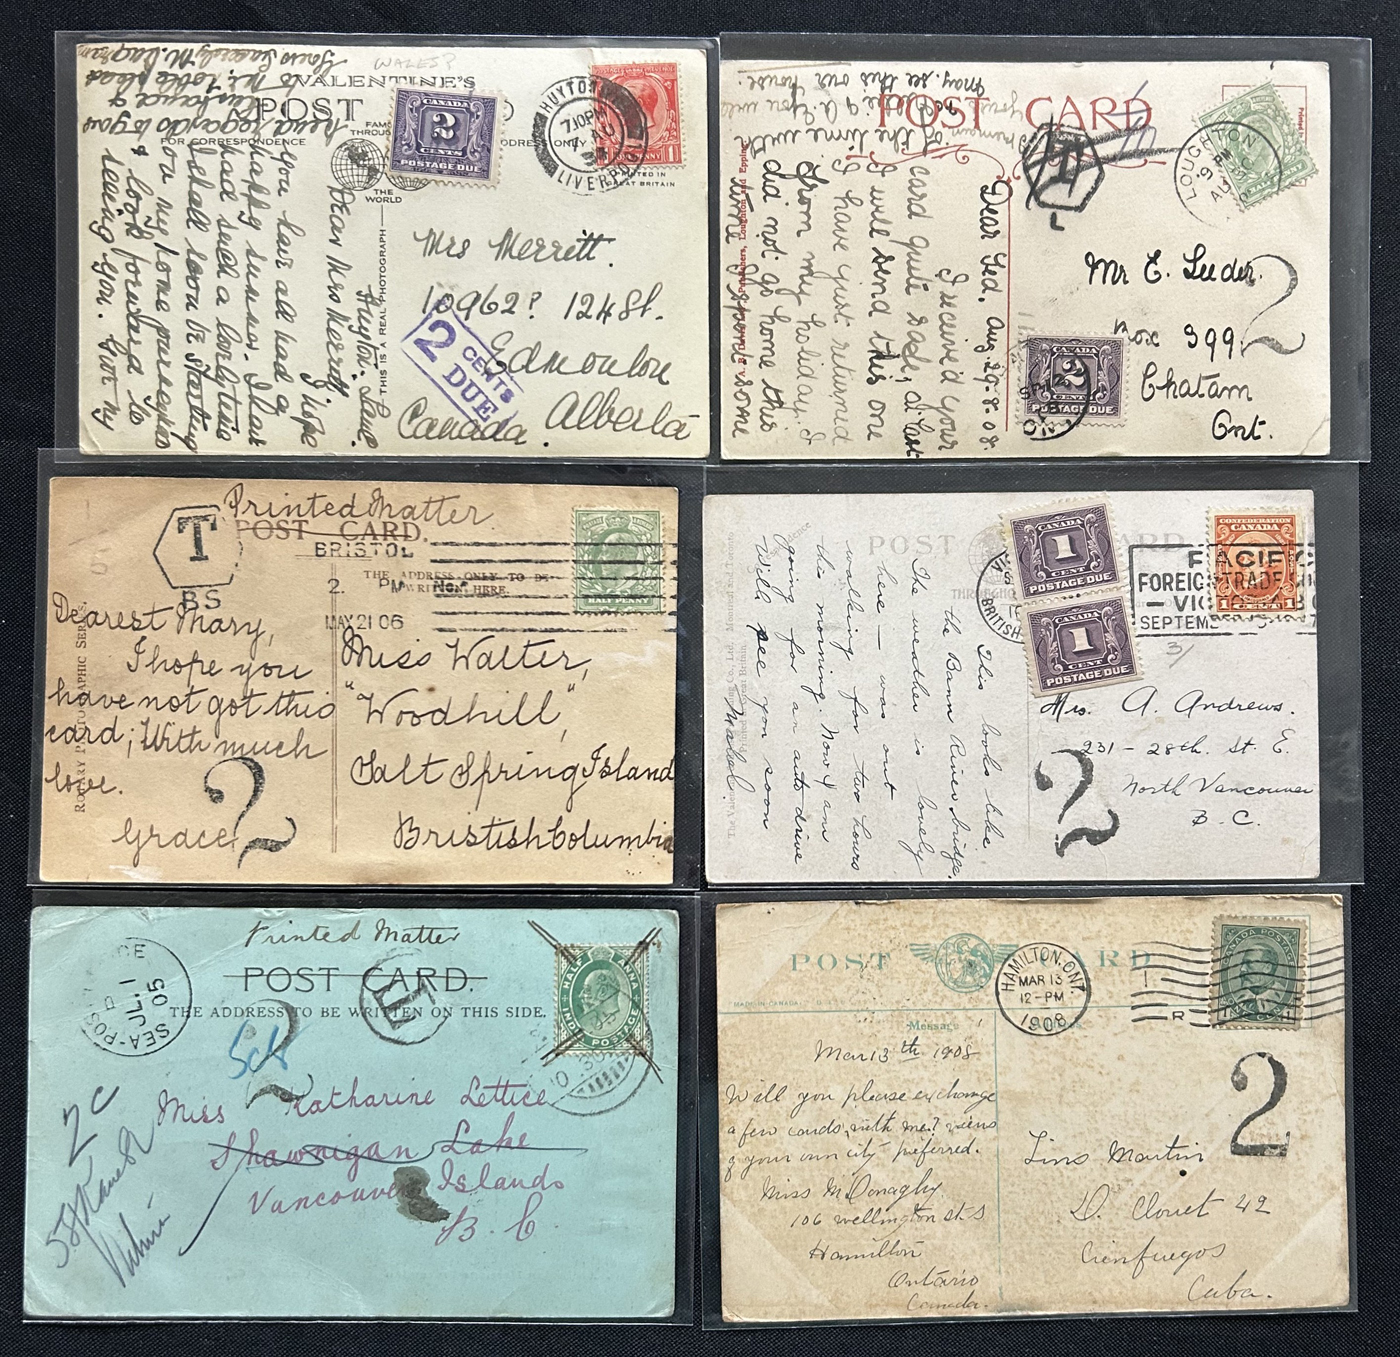 WALES?
VALENTINE'S
POST
FAMOUS
THROUGHOUT
FOR CORRESPONDENCE
ADDRESS ONLY
THE
WORLD
PRINTED IN
GREAT BRITAIN
THIS IS A REAL PHOTOGRAPH
CANADA
2
CENTS
POSTAGE DUE
HUYTON
7 30 PM
LIVERPOOL
Huyton. Lane
Dear Mrs Merrett,
I hope
you have all had a
happy summer. I have
had such a lovely time
I shall soon be starting
on my home journey
& look forward to
seeing you. Give my
kind regards to your
Mrs Merrett.
10962? 124 St.
Edmonton
Alberta
Canada.
2 CENTS
DUE
POST CARD
T
LOUGHTON
Mr E. Leeder.
Box 399
Chatam
Ont.
2
CANADA
2
CENTS
POSTAGE DUE
Dear Ted, Aug. 29. 8. 08.
I received your
card quite safe, at last
I will send this one
I have just returned
from my holiday. I
did not go home this
time I spent some
of the time with
Printed Matter
POST CARD.
THE ADDRESS ONLY TO BE
WRITTEN HERE.
T
BS
BRISTOL
2. PM
MAY 21 06
HALFPENNY
ROTARY PHOTOGRAPHIC SERIES.
Dearest Mary,
I hope you
have not got this
card; With much
love.
Grace.
2
Miss Walter,
"Woodhill",
Salt Spring Island
Bristish Columbia
POST CARD
CANADA
1
CENT
POSTAGE DUE
CANADA
1
CENT
POSTAGE DUE
CONFEDERATION
CANADA
1 CENT 1
PACIFIC
FOREIGN TRADE
VICTORIA BC
SEPTEMBER
3/
This looks like
the Bann River bridge.
The weather is lovely
here – was out
walking for two hours
this morning. Now I am
going for an auto drive
Will see you soon
Mabel.
Mrs. A. Andrews.
231 – 28th. St. E.
North Vancouver
B. C.
2
Printed Matter
POST CARD.
THE ADDRESS TO BE WRITTEN ON THIS SIDE.
SEA-POST OFFICE
D
JL 1
05
T
HALF ANNA
INDIA POSTAGE
2
5ct
2c
Miss Katharine Lettice
Shawnigan Lake
Vancouver Islands
B. C.
POST CARD
MADE IN CANADA
Message
HAMILTON, ONT.
MAR 13
12-PM
1908
CANADA POSTAGE
2
Mar 13th 1908
Will you please exchange
a few cards with me? views
of your own city preferred.
Miss McDonaghy
106 Wellington St. S
Hamilton
Ontario
Canada.
Lino Martin
D. Clouet 42
Cienfuegos
Cuba.